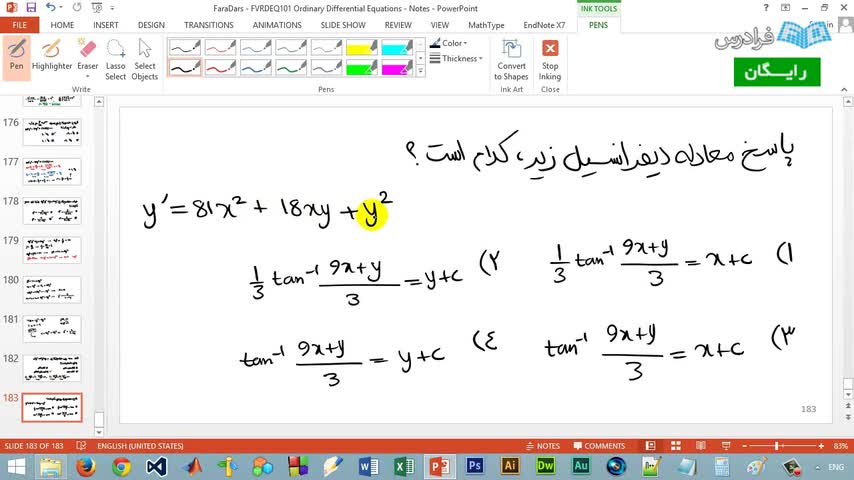 FaraDars - FVRDEQ101 Ordinary Differential Equations - Notes - PowerPoint
INK TOOLS
FILE HOME INSERT DESIGN TRANSITIONS ANIMATIONS SLIDE SHOW REVIEW VIEW MathType EndNote X7 PENS
فرادرس
رایگان
Pen Highlighter Eraser Lasso Select Select Objects
Color
Thickness
Convert to Shapes
Stop Inking
Write Pens Ink Art Close
176
177
178
179
180
181
182
183
پاسخ معادله دیفرانسیل زیر، کدام است؟
y′ = 81x² + 18xy + y²
۱) 1/3 tan⁻¹ (9x+y)/3 = x+c ۲) 1/3 tan⁻¹ (9x+y)/3 = y+c
۳) tan⁻¹ (9x+y)/3 = x+c ٤) tan⁻¹ (9x+y)/3 = y+c
183
SLIDE 183 OF 183 ENGLISH (UNITED STATES) NOTES COMMENTS 83%
ENG